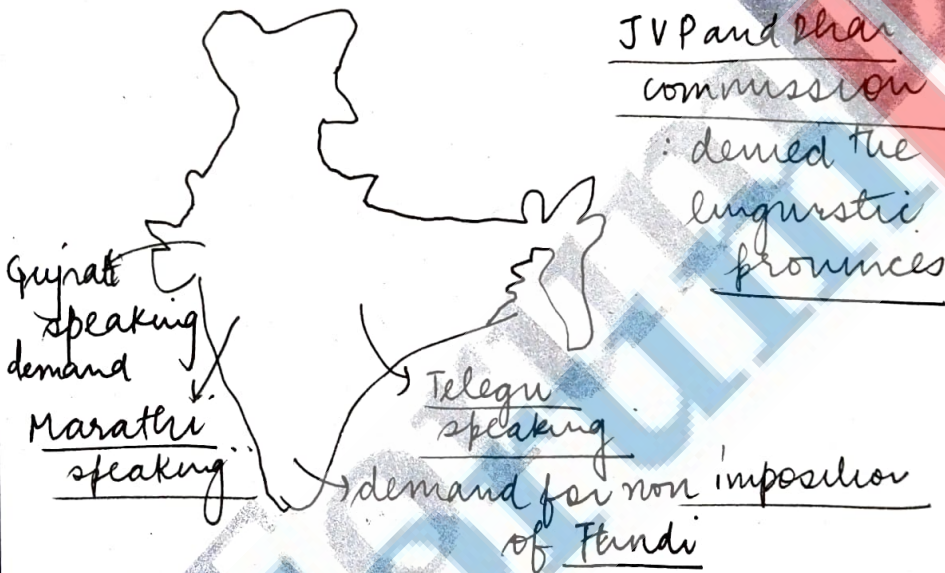 JVP and Dhar
commission
: denied the
linguistic
provinces
Gujrati
speaking
demand
Marathi
speaking
Telegu
speaking
demand for non imposition
of Hindi